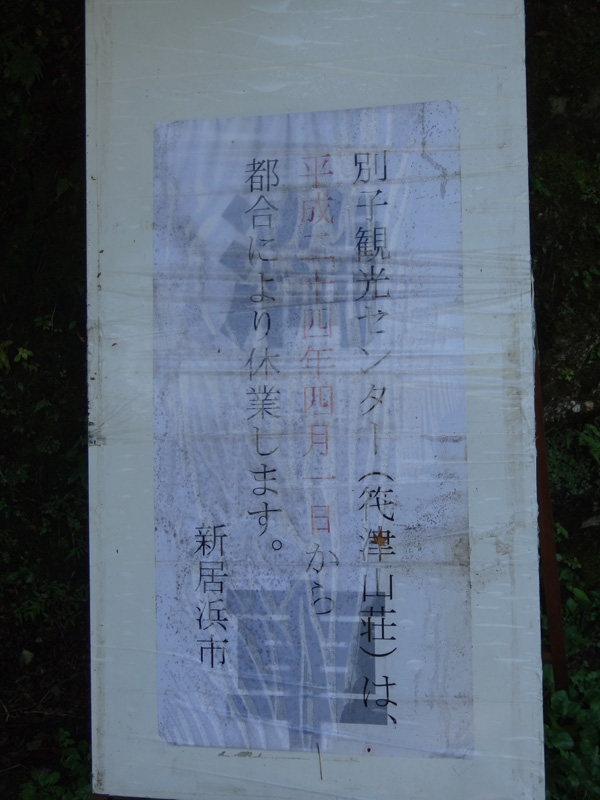 別子観光センター（筏津山荘）は、
平成二十四年四月一日から
都合により休業します。
新居浜市